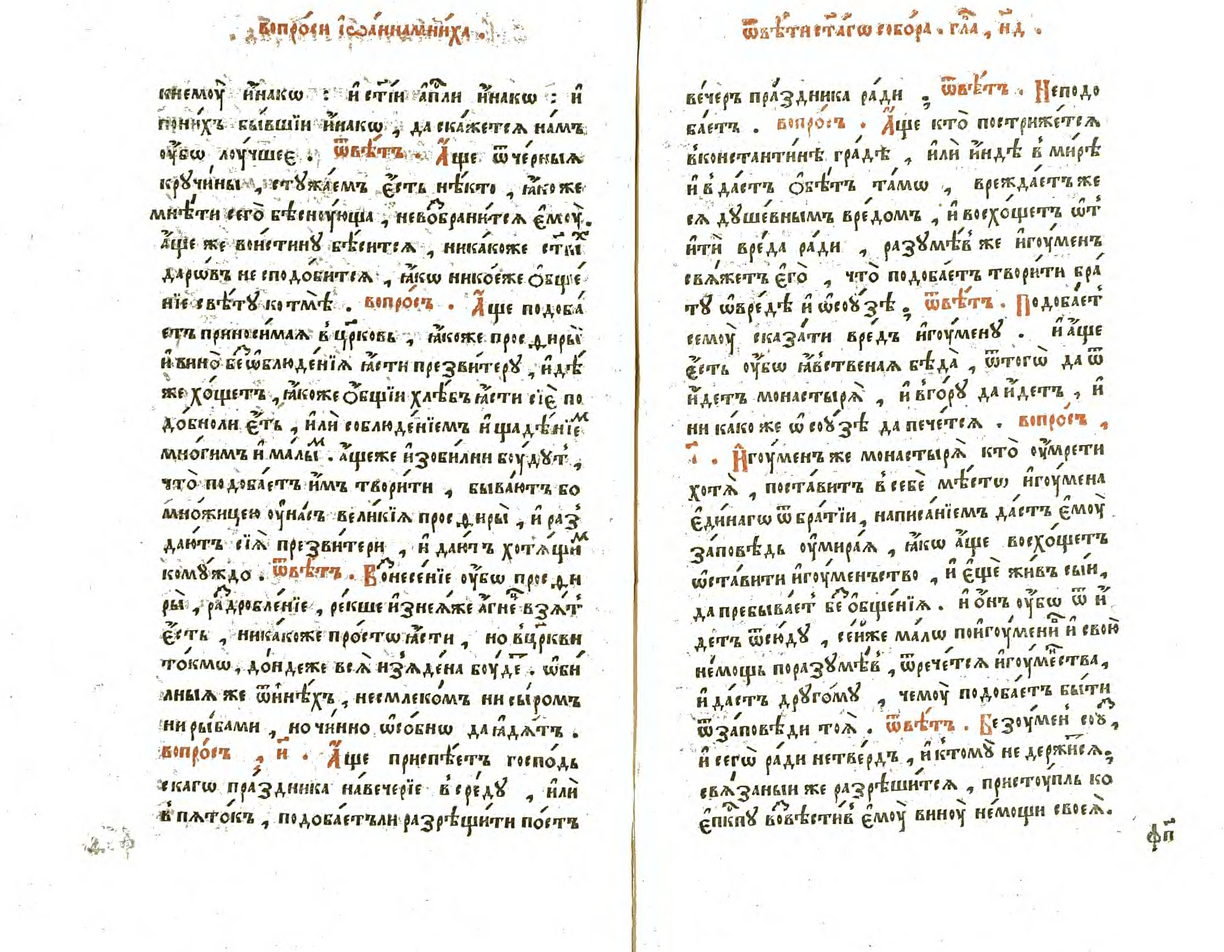 вопро́си і҆ѡа́ннамни́ха .
кнемоу̀ и҆́накѡ : и҆ ст҃і́и а҆пⷭ҇ли и҆́накѡ : и҆
пони́хъ бы́вшїи и҆́накѡ , да ска́жетсѧ на́мъ
оу҆́бѡ лоу́чшеє . ѿвѣ́тъ . А҆́ще ѿ че́рныѧ
кручи́ны , стужа́емъ є҆́сть нѣ́кто , ꙗ҆́коже
мнѣ́ти сего̀ бѣсноующа , невⸯзбрани́тсѧ є҆моу̀ .
а҆́ще же вои́стину бѣси́тсѧ , ника́коже ст҃ы́хъ
даро́въ не сподо́битсѧ , ꙗ҆́кѡ нико́еже ѻ҆бще́
нїе свѣ́ту ко тмѣ̀ . вопро́съ . А҆́ще подоба́
етъ приноси́маѧ в црⷦ҇ковь , ꙗ҆́коже просѳиры̀
и҆ вино̀ беⷥѡ҆блюде́нїѧ ꙗ҆́сти презви́теру , и҆дѣ́
же хо́щетъ , ꙗ҆́коже ѻ҆́бщїи хлѣ́бъ ꙗ҆́сти сїѐ по
до́бноли є҆́сть , и҆лѝ соблюде́нїемъ и҆ щадѣ́нїеⷨ
мно́гимъ и҆ ма́лыⷨ . а҆́щеже и҆зоби́лни боу́дутъ ,
что̀ подоба́етъ и҆̀мъ твори́ти , быва́ютъ бо
мно́жицею оу҆ на́съ вели́кїѧ просѳиры̀ , и҆ раⷥ
даю́тъ сїѧ̀ презви́тери , и҆ даю́тъ хотѧ́щиⷨ
кому́ждо . ѿвѣ́тъ . Воⷥнесе́нїе оу҆́бѡ просѳи
ры̀ , раⷥдробле́нїе , ре́кше и҆знеѧ́же а҆́гнеⷰ взѧ́тъ
є҆́сть , ника́коже про́стѡ ꙗ҆́сти , но в црⷦ҇кви
то́кмѡ , до́ндеже всѧ̀ и҆з̾ѧде́на боу́деⷮ . ѡ҆би
лныѧ же ѿ и҆нѣ́хъ , несмлеко́мъ ни сы́ромъ
ни ры́бами , но чи́нно ѡ҆со́бнѡ да ꙗ҆дѧ́тъ .
вопро́съ , и҃ . А҆́ще приспѣ́етъ госпо́дь
скагѡ пра́здника наве́черїе в сре́ду , и҆лѝ
в пѧто́къ , подоба́етъли разрѣши́ти по́стъ
ѿвѣ́ти ст҃а́гѡ собо́ра . гла҃ , н҃д .
ве́черъ пра́здника ра́ди , ѿвѣ́тъ . Неподо
ба́етъ . вопро́съ . А҆́ще кто̀ постриже́тсѧ
вконстанти́нѣ гра́дѣ , и҆лѝ и҆́ндѣ в ми́рѣ
и҆ вда́стъ ѻ҆бѣ́тъ та́мѡ , врежда́етъ же
сѧ душе́внымъ вре́домъ , и҆ восхо́щетъ ѿ
ити́ вреда ра́ди , разумѣ́в же и҆гоу́менъ
свѧ́жетъ є҆го̀ , что̀ подоба́етъ твори́ти бра́
ту ѡ҆вре́дѣ и҆ ѡ҆соу́зѣ , ѿвѣ́тъ . Подоба́етъ
семоу̀ сказа́ти вре́дъ и҆гоу́мену . и҆ а҆́ще
є҆́сть оу҆́бѡ ꙗ҆́вственаѧ бѣда̀ , ѿтогѡ̀ да ѿ
и҆́детъ монастырѧ̀ , и҆ вго́ру да и҆́детъ , и҆
ни како же ѡ҆ соу́зѣ да пече́тсѧ . вопро́съ ,
і҃ . И҆гоу́менъ же монастырѧ̀ кто̀ оу҆мре́ти
хотѧ̀ , поста́витъ в себє мѣ́стѡ и҆гоу́мена
є҆ди́нагѡ ѿ бра́тїи , написа́нїемъ да́стъ є҆моу̀
за́повѣдь оу҆мира́ѧ , ꙗ҆́кѡ а҆́ще восхо́щетъ
ѡ҆ста́вити и҆гоу́менъство , и҆ є҆щѐ жи́въ сы́и ,
да пребыва́етъ беⷥ ѻ҆бще́нїѧ . и҆ о҆́нъ оу҆́бѡ ѿ и҆́
детъ ѿсю́ду , се́йже ма́лѡ поигоу́мени и҆ свою̀
не́мощь поразумѣ́въ , ѿрече́тсѧ и҆гоу́меⷩства ,
и҆ да́стъ друго́му , чемоу̀ подоба́етъ бы́ти
ѿ за́повѣди тоѧ̀ . ѿвѣ́тъ . Безоу́менъ соу́дъ ,
и҆ сегѡ̀ ра́ди нетве́рдъ , и҆ ктому̀ не держи́сѧ .
свѧ́заныи же разрѣши́тсѧ , пристоу́пль ко
є҆пⷭ҇кпу воⷥвѣсти́в є҆моу̀ виноу̀ не́мощи своеѧ̀ .
фп҃